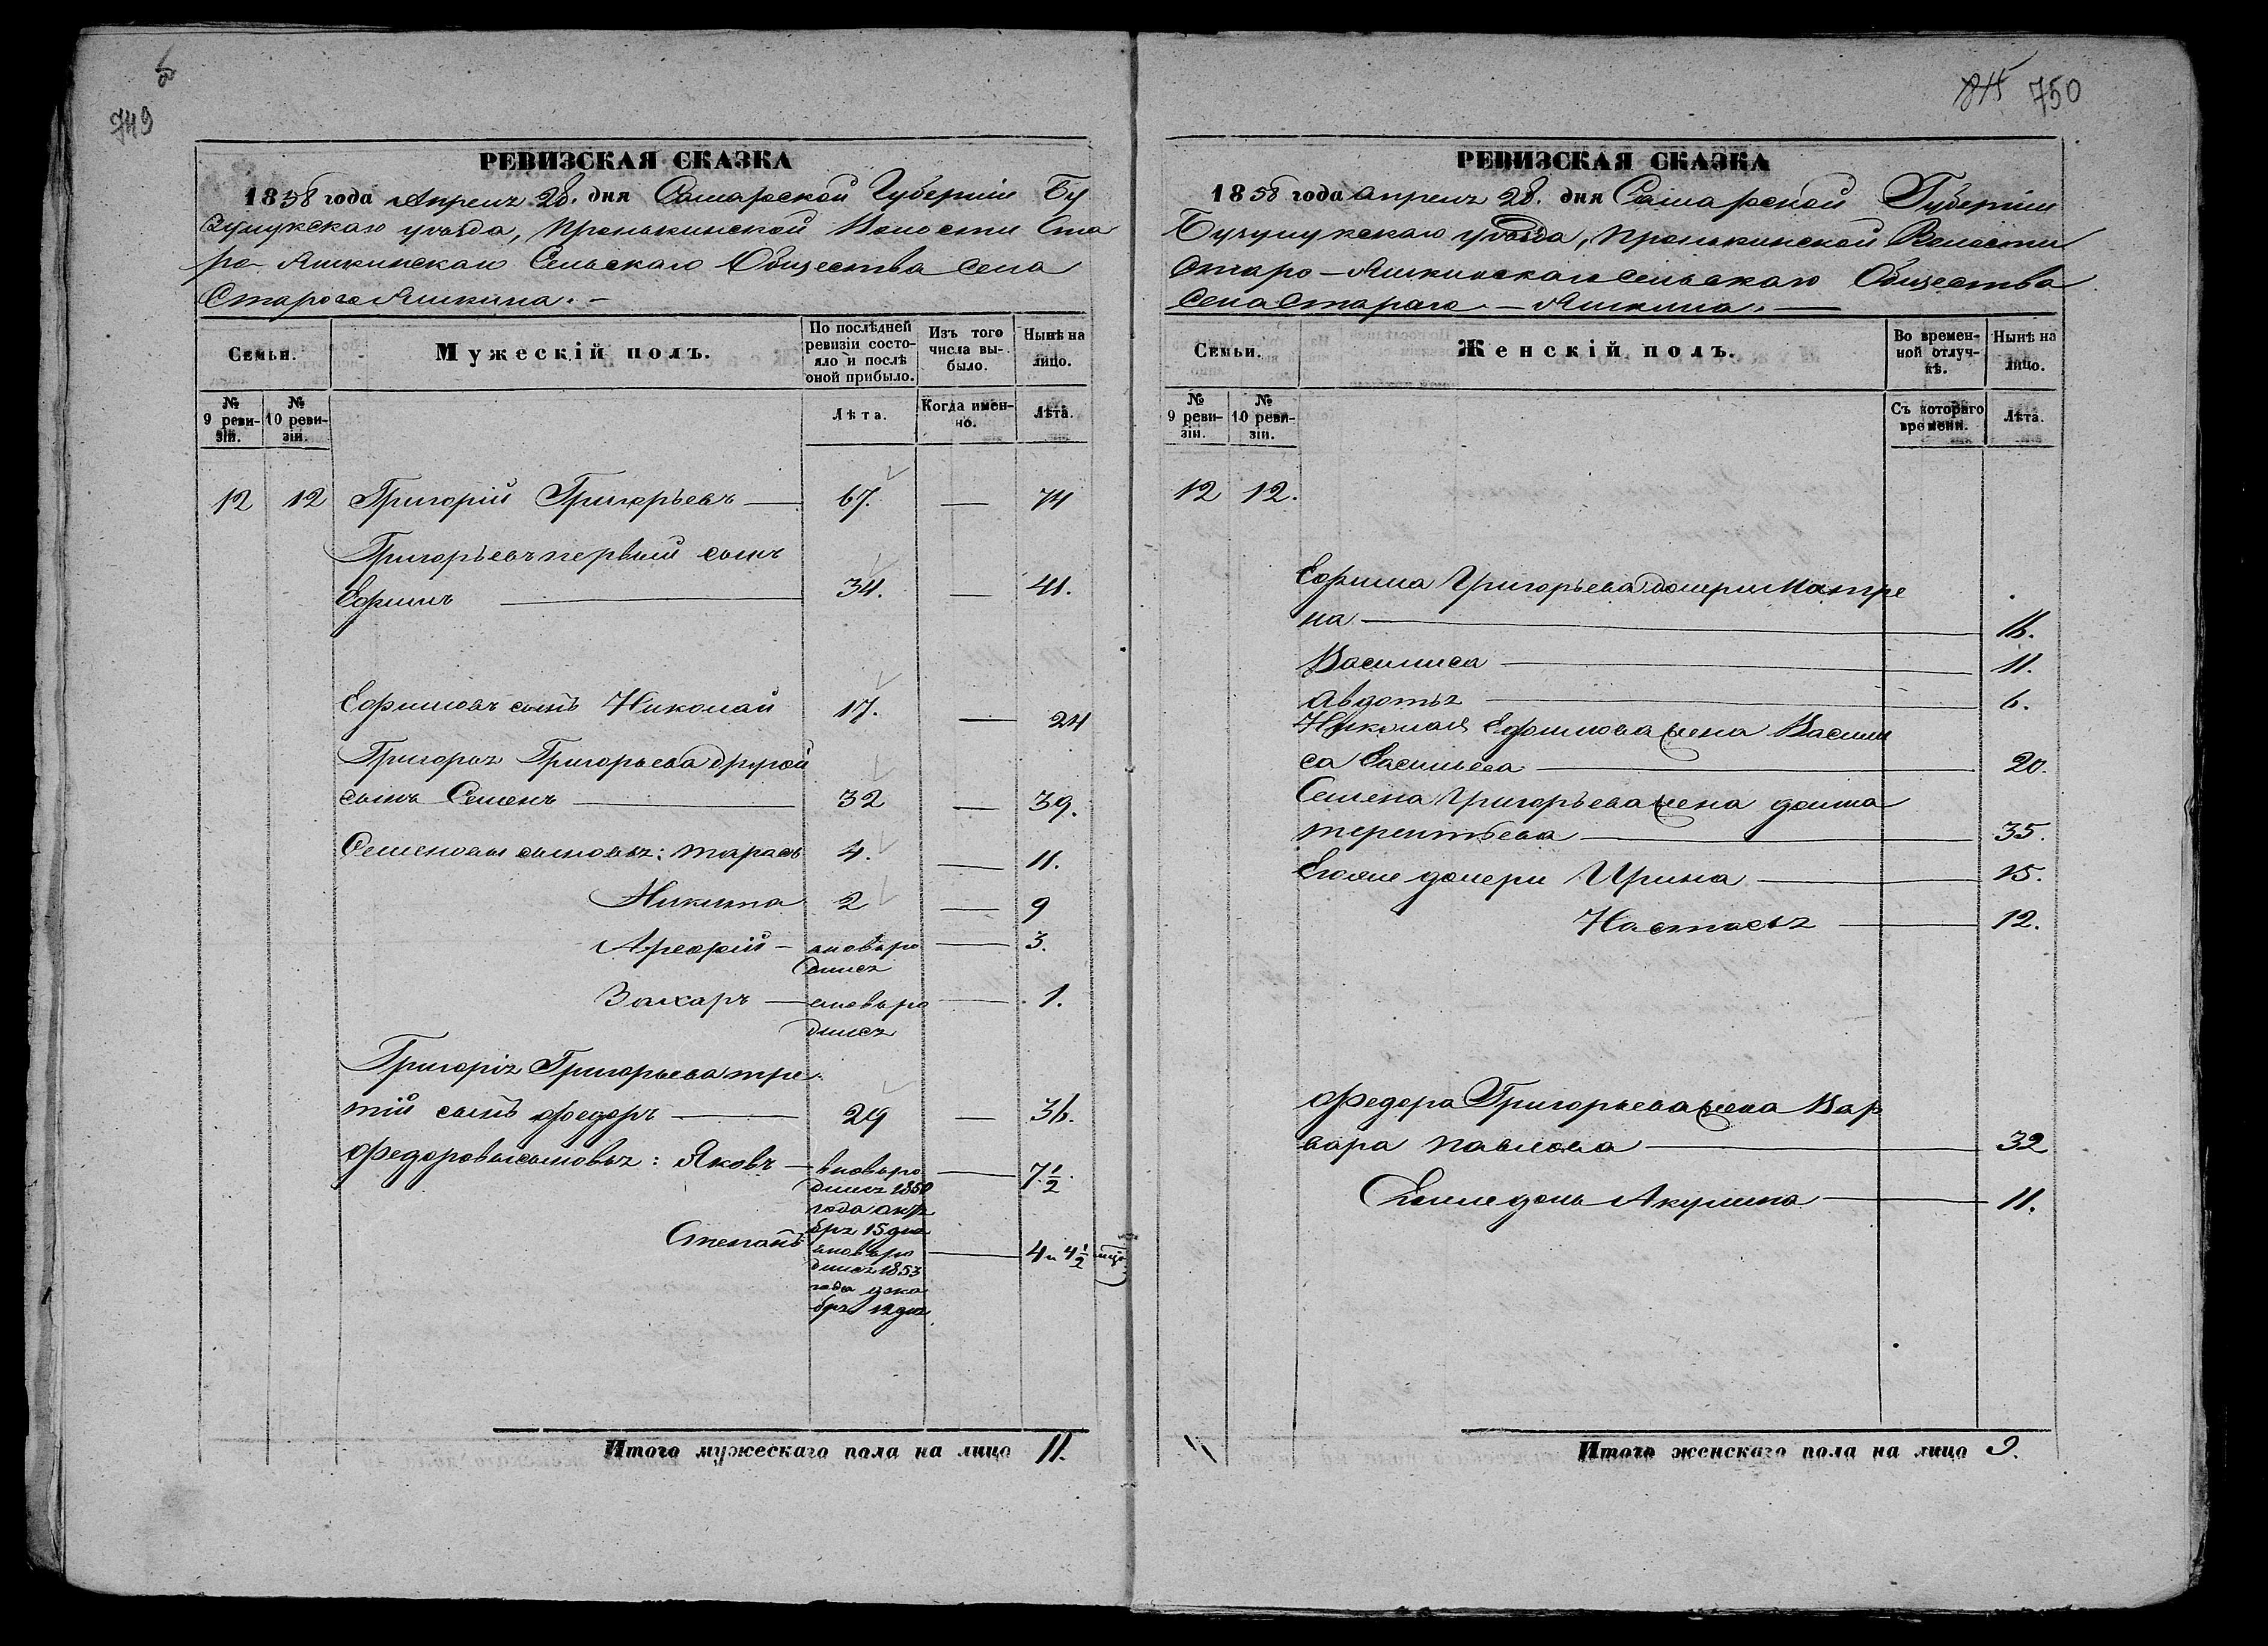 6
749
РЕВИЗСКАЯ СКАЗКА
1858 года Апреля 28. дня Самарской Губерніи Бу
зулукскаго уѣзда, Пронькинской Волости Ста
ро-Яшкинскаго Сельскаго Общества села
Стараго Яшкина. –
Семьи.
Мужескій полъ.
По послѣдней ревизіи состояло и послѣ оной прибыло.
Изъ того числа выбыло.
Нынѣ на лицо.
№ 9 ревизіи.
№ 10 ревизіи.
Лѣта.
Когда именно.
Лѣта.
12 12 Григорій Григорьевъ — 67. — 74
Григорьевъ первый сынъ
Ефимъ — 34. — 41.
Ефимовъ сынъ Николай 17. — 24
Григорья Григорьева другой
сынъ Семенъ — 32 — 39.
Семеновы сыновья: Тарасъ 4. — 11.
Никита 2 — 9
Арефий – вновь ро — 3.
дился
Захаръ — вновь ро — 1.
дился
Григорія Григорьева тре
тій сынъ Федоръ — 29 — 36.
Федоровы сыновья: Яковъ — вновь ро — 7 1/2.
дился 1850
года октя
бря 15 дня
Степанъ вновь ро — 4 и 4 1/2 мцо
дился 1853
года дека
бря 12 дня
Итого мужескаго пола на лицо 11.
845 750
РЕВИЗСКАЯ СКАЗКА
1858 года апреля 28. дня Самарской Губерніи
Бузулукскаго уѣзда, Пронькинской Волости
Старо–Яшкинскаго сельскаго Общества
села Стараго – Яшкина. —
Семьи.
Женскій полъ.
Во временной отлучкѣ.
Нынѣ на лицо.
№ 9 ревизіи.
№ 10 ревизіи.
Съ котораго времени.
Лѣта.
12 12.
Ефима Григорьева дочери Матре
на — 16.
Василиса — 11.
Авдотья — 6.
Николая Ефимова жена Васили
са Васильева — 20.
Семена Григорьева жена домна
терентьева — 35.
Егожъ дочери Ирина — 15.
Настасья — 12.
Федора Григорьева жена Вар
вара павлова — 32
Егоже дочь Акулина — 11.
Итого женскаго пола на лицо 9.